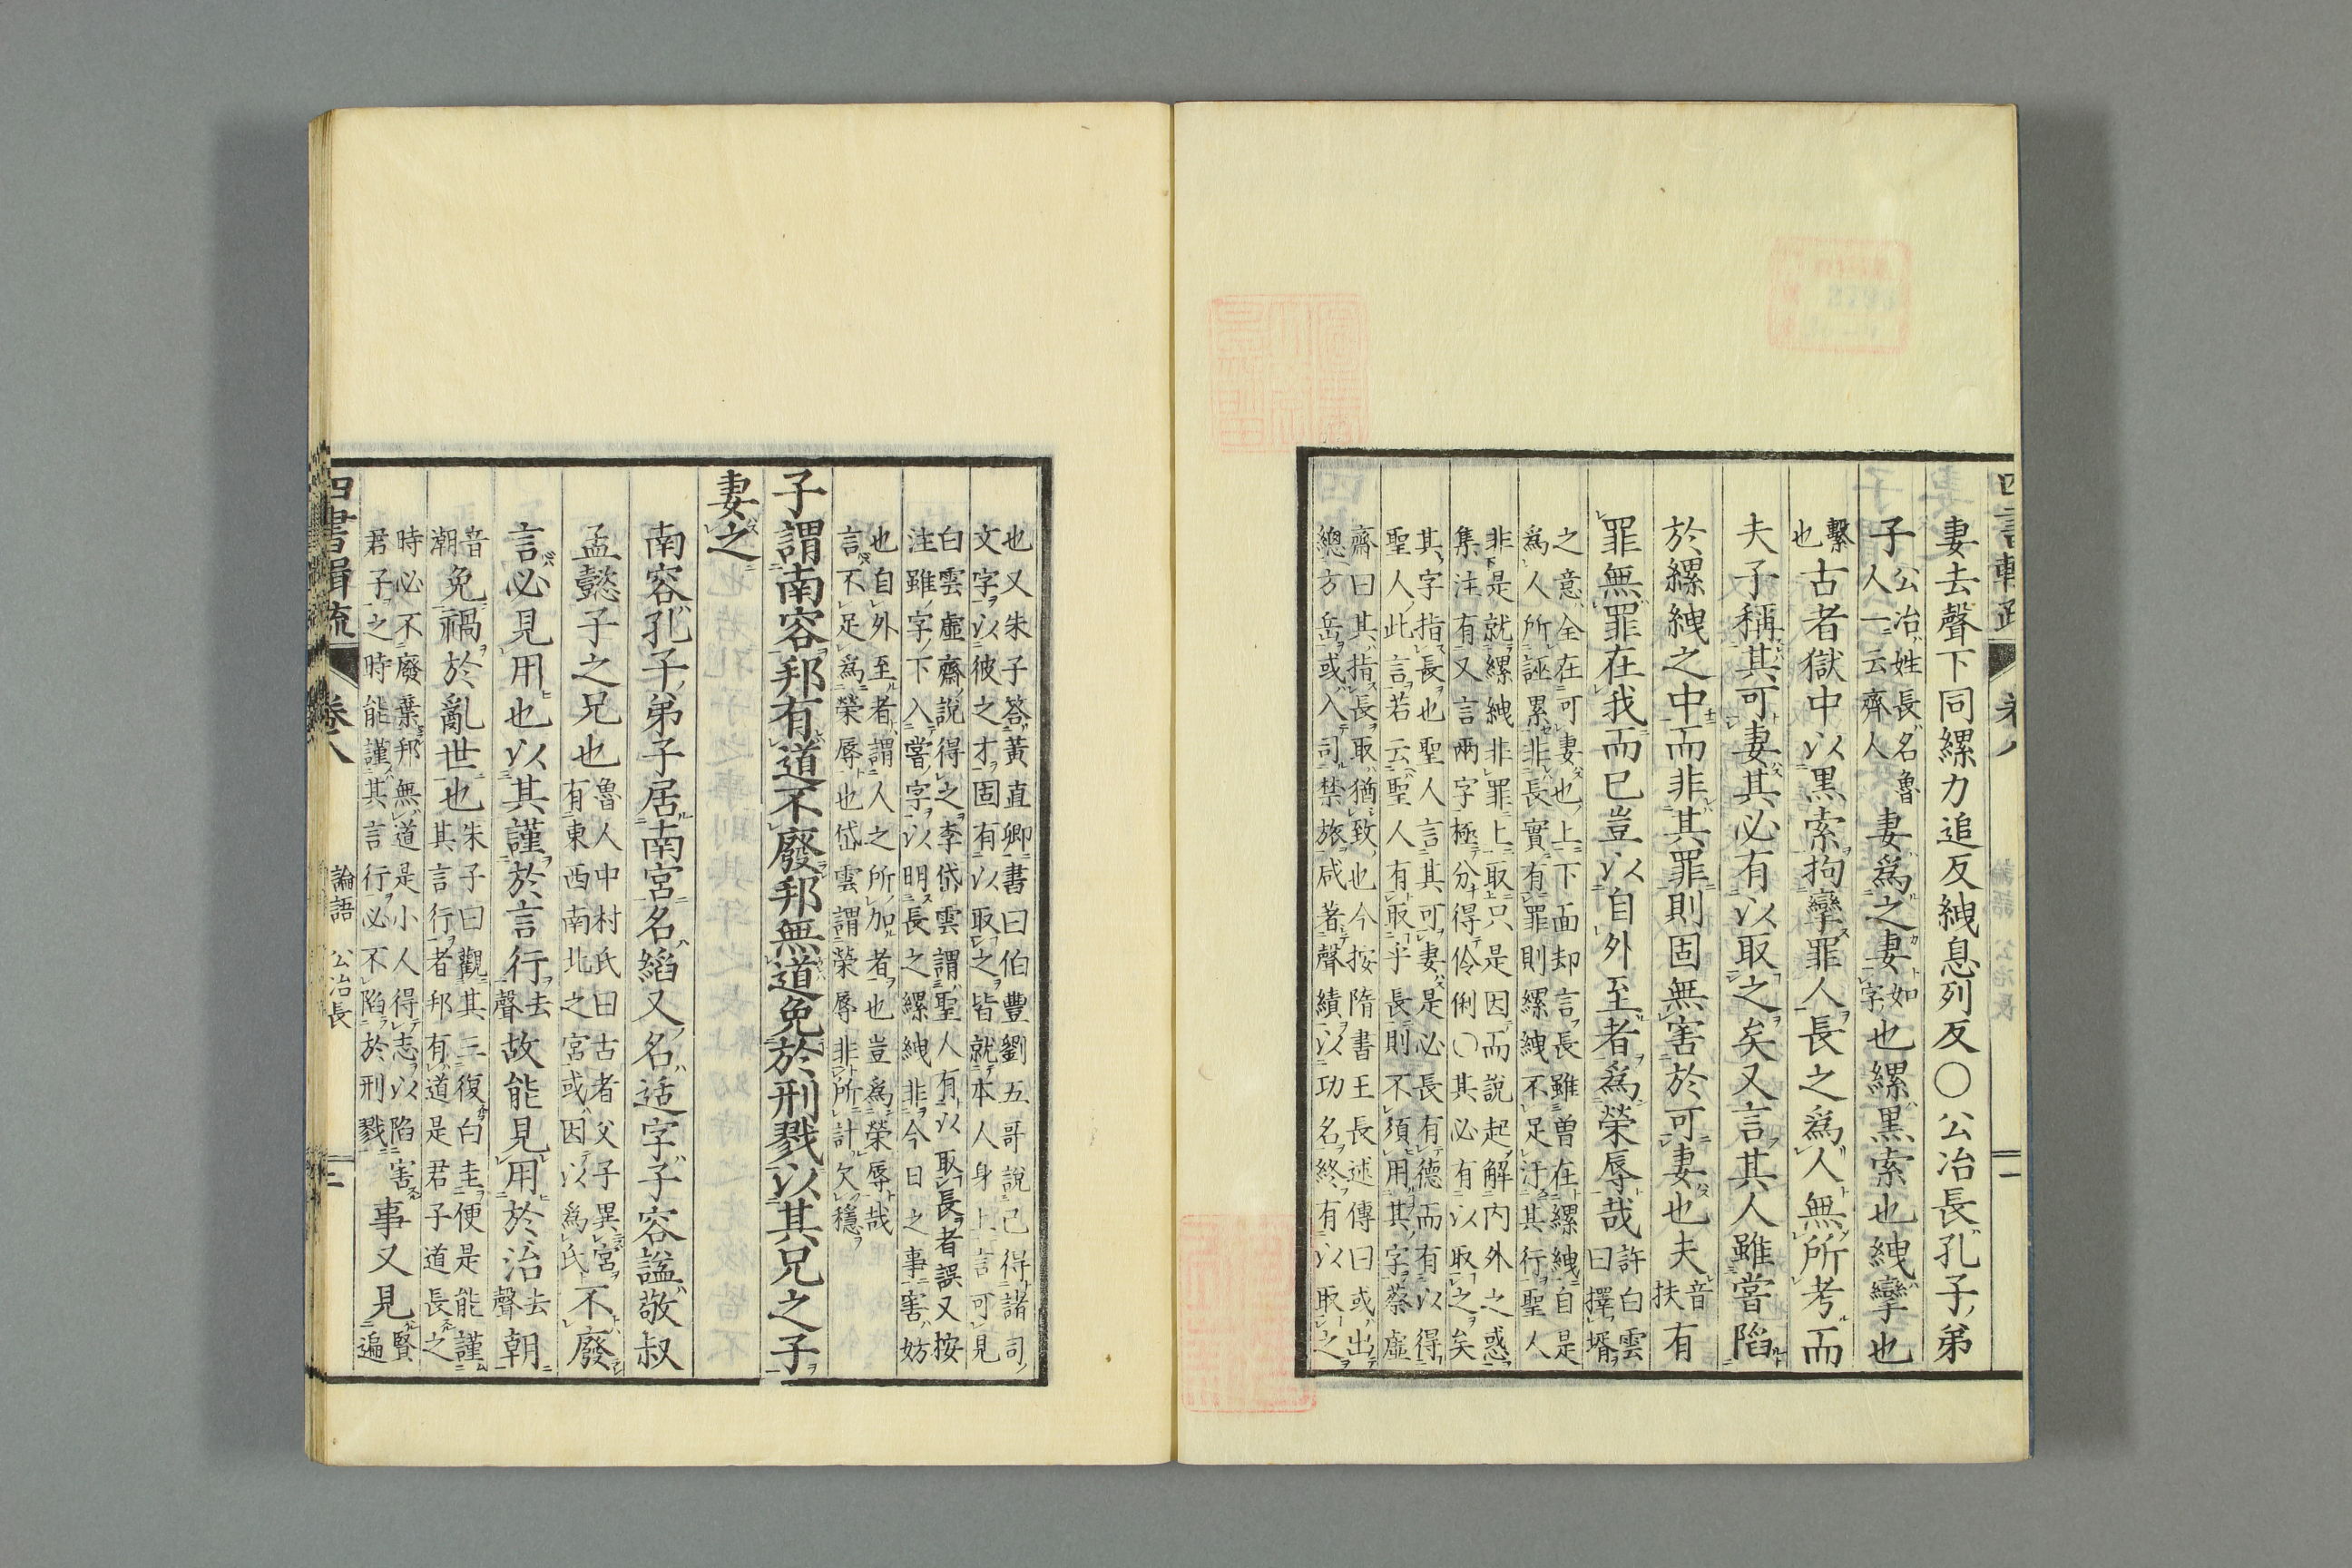 妻去聲下同縲力追反絏息列反〇公冶長孔子弟
子公冶姓長名魯人一云齊人妻爲之妻如字也縲黑索也絏攣也
繫也古者獄中以黑索拘攣罪人長之爲人無所考而
夫子稱其可妻其必有以取之矣又言其人雖嘗陷
於縲絏之中而非其罪則固無害於可妻也夫音扶有
罪無罪在我而已豈以自外至者爲榮辱哉許白雲曰擇壻
之意全在可妻也上下面却言長雖曽在縲絏自是
爲人所誣累非長實有罪則縲絏不足汙其行聖人
非是就縲絏非罪上取只是因而說起解内外之惑
集注有又言兩字極分得伶俐〇其必有以取之矣
其字指長也聖人言其可妻是必長有德而有以得
聖人此言若云聖人有取乎長則不須用其字蔡虛
齋曰其指長取猶致也今按隋書王長述傳曰或出
總方岳或入司禁旅咸著聲績以功名終有以取之
也又朱子答黃直卿書曰伯豐劉五哥說已得諸司
文字以彼之才固有以取之皆就本人身上言可見
白雲虛齋說得之李岱雲謂聖人有以取長者誤又按
注雖字下入嘗字以明長之縲絏非今日之事害妨
也自外至者謂人之所加者也豈爲榮辱哉
言不足爲榮辱也岱雲謂榮辱非所計欠穩
子謂南容邦有道不廢邦無道免於刑戮以其兄之子
妻之
南容孔子弟子居南宮名縚又名适字子容謚敬叔
孟懿子之兄也魯人中村氏曰古者父子異宮有東西南北之宮或因以爲氏不廢
言必見用也以其謹於言行去聲故能見用於治去聲朝
音潮免禍於亂世也朱子曰觀其三復白圭便是能謹其言行者邦有道是君子道長之
時必不廢棄邦無道是小人得志以陷害賢
君子之時能謹其言行必不陷於刑戮事又見遍
四書輯疏 卷八 論語 公冶長 二